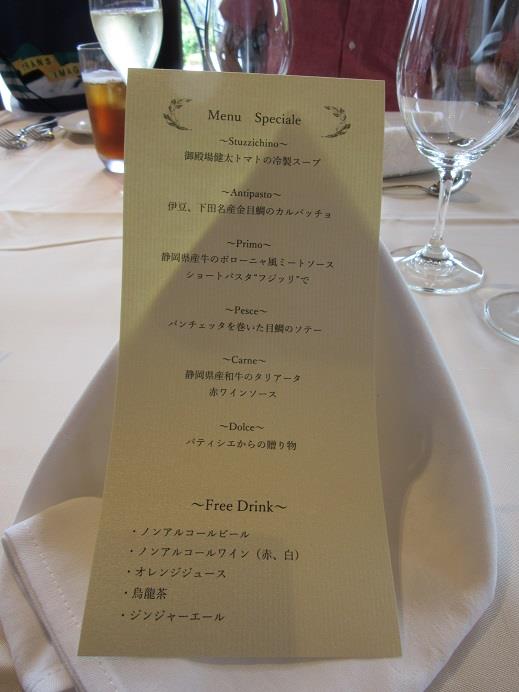 TRANS
IMAG
Menu Speciale
～Stuzzichino～
御殿場健太トマトの冷製スープ
～Antipasto～
伊豆、下田名産金目鯛のカルパッチョ
～Primo～
静岡県産牛のボローニャ風ミートソース
ショートパスタ"フジッリ"で
～Pesce～
パンチェッタを巻いた目鯛のソテー
～Carne～
静岡県産和牛のタリアータ
赤ワインソース
～Dolce～
パティシエからの贈り物
～Free Drink～
・ノンアルコールビール
・ノンアルコールワイン（赤、白）
・オレンジジュース
・烏龍茶
・ジンジャーエール